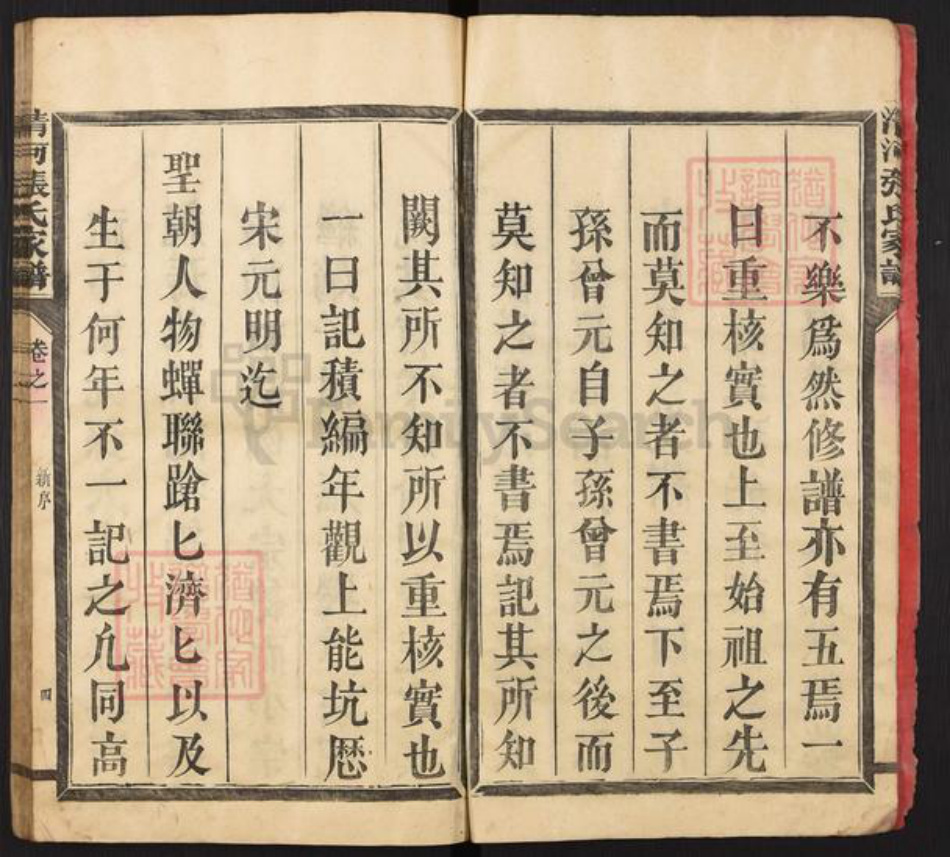 清河張氏家譜
不樂爲然修譜亦有五焉一
曰重核實也上至始祖之先
而莫知之者不書焉下至子
孫曾元自子孫曾元之後而
莫知之者不書焉記其所知
闕其所不知所以重核實也
一曰記積編年觀上能坑厯
宋元明迄
聖朝人物蟬聯蹌匕濟匕以及
生于何年不一記之凢同高
清河張氏家譜
卷之一
新序
四
FamilySearch